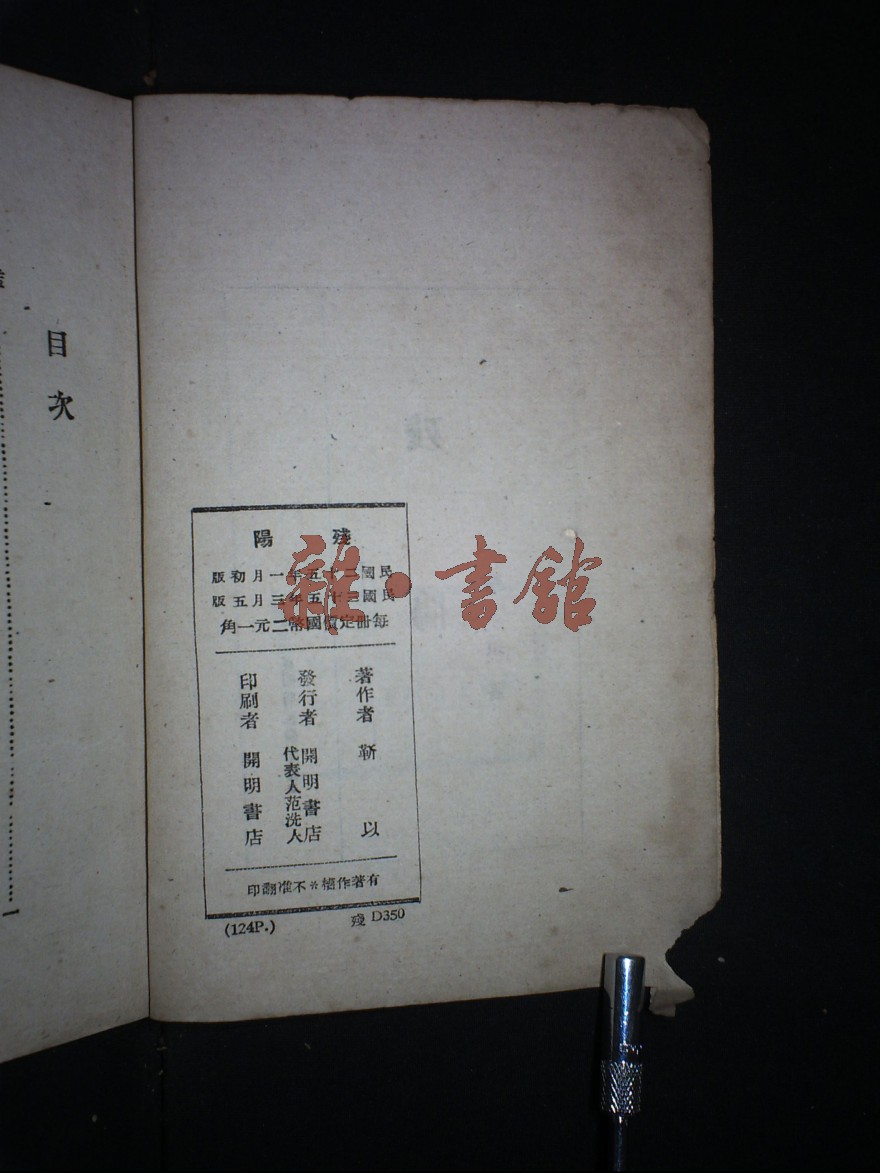 目次
殘陽
民國三十五年一月初版
民國三十五年三月五版
每冊定價國幣二元一角
著作者 靳以
發行者 開明書店
代表人范洗人
印刷者 開明書店
有著作權※不准翻印
(124P.) 殘 D350
雜·書館